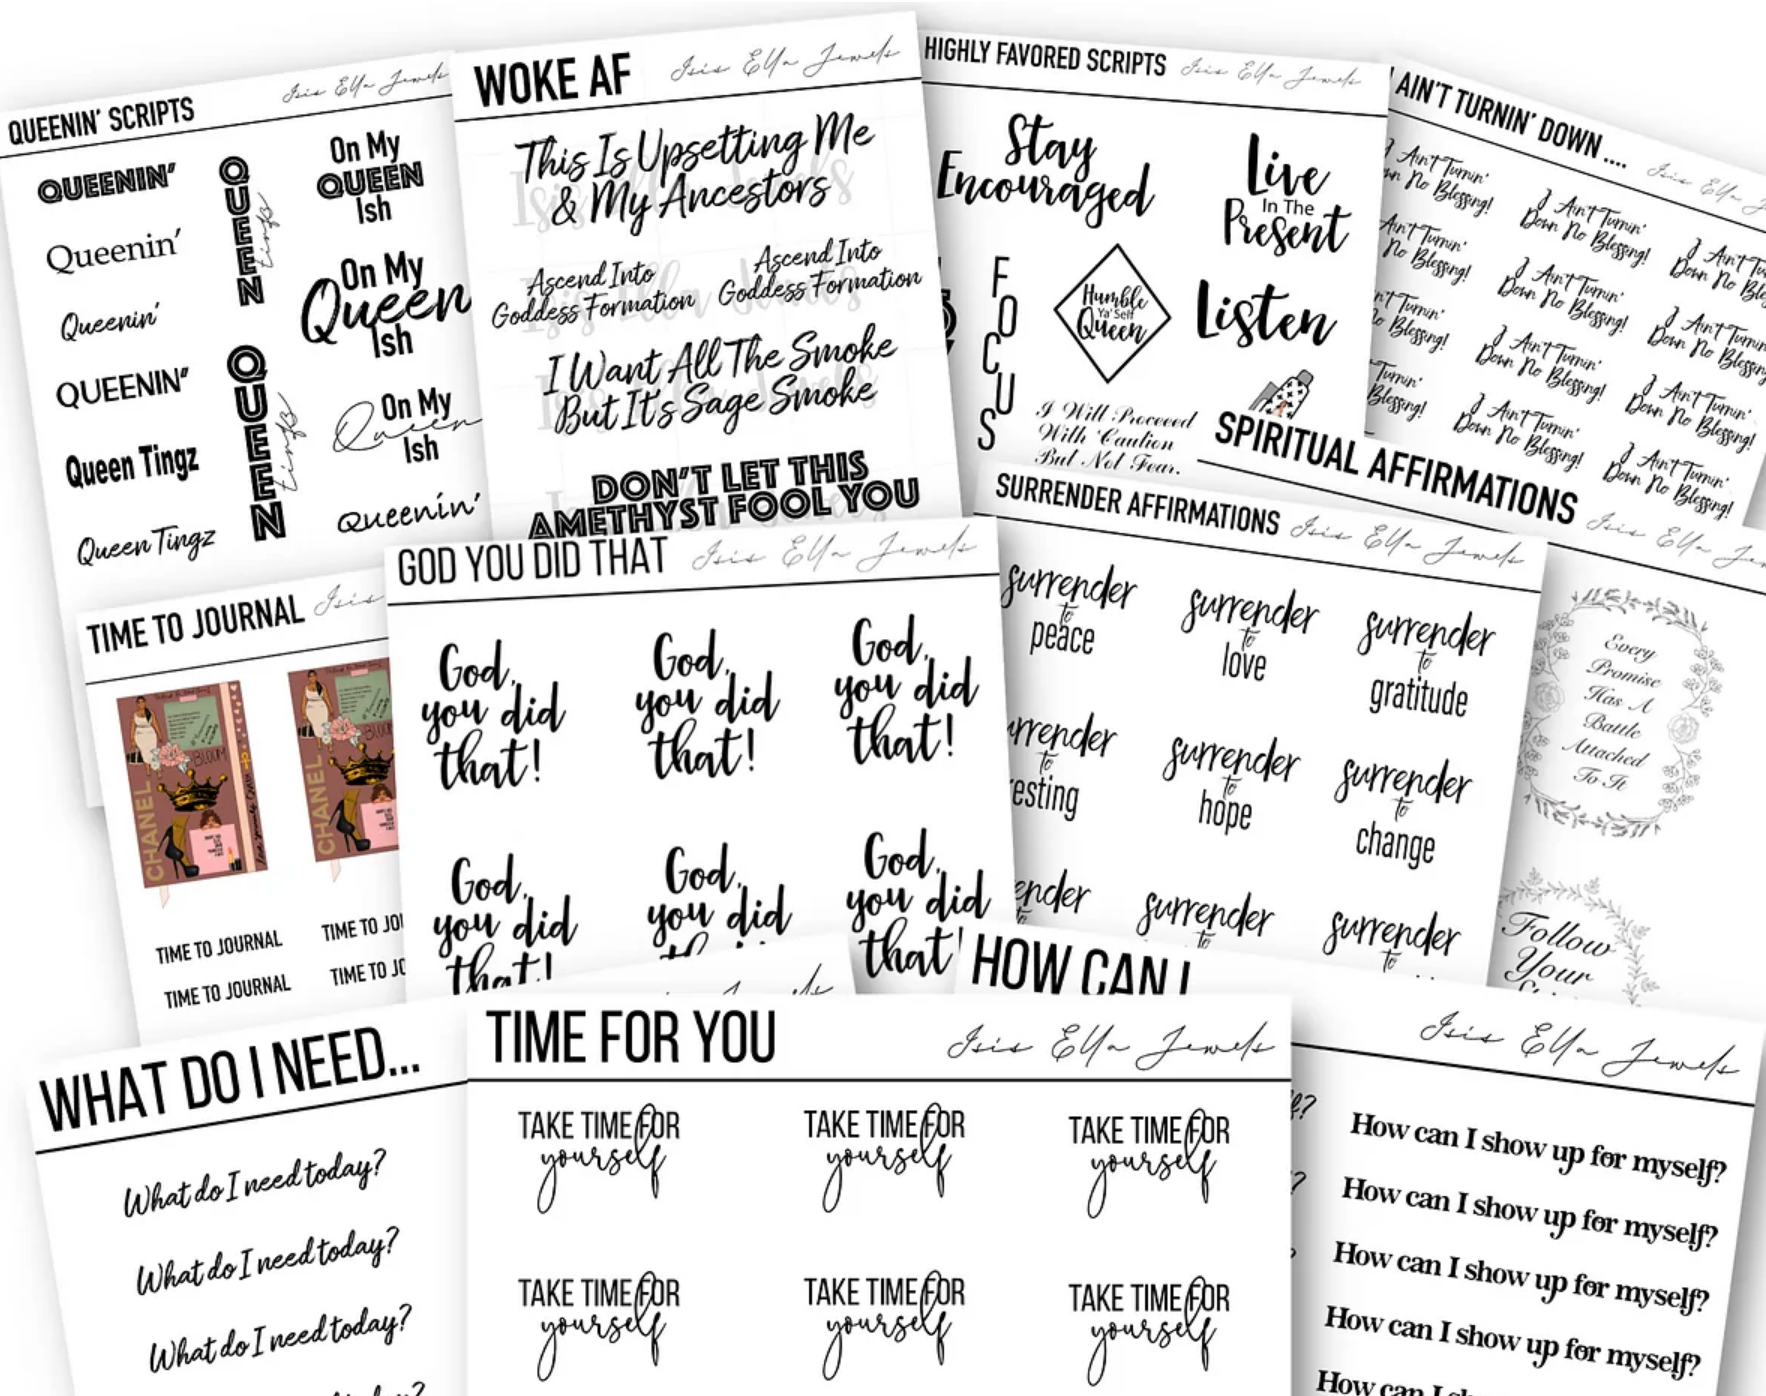 QUEENIN' SCRIPTS
Isis Ella Jewels
QUEENIN'
Queenin'
Queenin'
QUEENIN'
Queen Tingz
Queen Tingz
QUEEN
tingz
QUEEN
tingz
On My
QUEEN
Ish
On My
Queen
Ish
On My
Queen
Ish
Queenin'
WOKE AF
Isis Ella Jewels
This Is Upsetting Me
& My Ancestors
Ascend Into
Goddess Formation
Ascend Into
Goddess Formation
I Want All The Smoke
But It's Sage Smoke
DON'T LET THIS
AMETHYST FOOL YOU
HIGHLY FAVORED SCRIPTS
Isis Ella Jewels
Stay
Encouraged
Live
In The
Present
FOCUS
Humble
Ya' Self
Queen
Listen
I Will Proceed
With Caution
But Not Fear.
AIN'T TURNIN' DOWN ....
Isis Ella J
I Ain't Turnin'
wn No Blessing!
I Ain't Turnin'
Down No Blessing!
I Ain't Tu
Down No Ble
Ain't Turnin'
No Blessing!
I Ain't Turnin'
Down No Blessing!
I Ain't Turnin
Down No Blessing
n't Turnin'
o Blessing!
I Ain't Turnin'
Down No Blessing!
I Ain't Turnin'
Down No Blessing!
Turnin'
Blessing!
I Ain't Turnin'
Down No Blessing!
I Ain't Turnin'
Down No Blessing!
SPIRITUAL AFFIRMATIONS
Isis Ella Je
Every
Promise
Has A
Battle
Attached
To It
Follow
Your
SURRENDER AFFIRMATIONS
Isis Ella Jewels
surrender
to
peace
surrender
to
love
surrender
to
gratitude
urrender
to
esting
surrender
to
hope
surrender
to
change
ender
to
surrender
to
surrender
to
TIME TO JOURNAL
Isis
BLOOM
CHANEL
BLOOM
CHANEL
TIME TO JOURNAL
TIME TO JOU
TIME TO JOURNAL
TIME TO JO
GOD YOU DID THAT
Isis Ella Jewels
God,
you did
that!
God,
you did
that!
God,
you did
that!
God,
you did
that!
God,
you did
God,
you did
that
HOW CAN I
Isis Ella Jewels
How can I show up for myself?
How can I show up for myself?
How can I show up for myself?
How can I show up for myself?
WHAT DO I NEED...
What do I need today?
What do I need today?
What do I need today?
TIME FOR YOU
Isis Ella Jewels
TAKE TIME FOR
yourself
TAKE TIME FOR
yourself
TAKE TIME FOR
yourself
TAKE TIME FOR
yourself
TAKE TIME FOR
yourself
TAKE TIME FOR
yourself